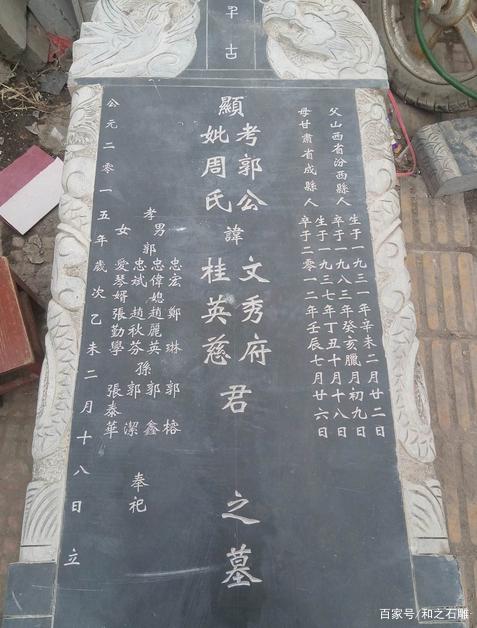 古
父山西省汾西縣人
生于一九三一年辛未二月廿二日
卒于一九八三年癸亥臘月初九日
母甘肅省成縣人
生于一九三七年丁丑十月十八日
卒于二零一二年壬辰七月廿六日
顯
考郭公
妣周氏
諱
文秀府
桂英慈
君
之墓
孝男
郭
忠宏 鄭琳 郭榕
忠偉媳趙麗英孫郭鑫
忠斌 趙秋芬 郭潔
女 愛琴婿張勤學 張泰華
奉祀
公元二零一五年歲次乙未二月十八日立
百家号/和之石雕